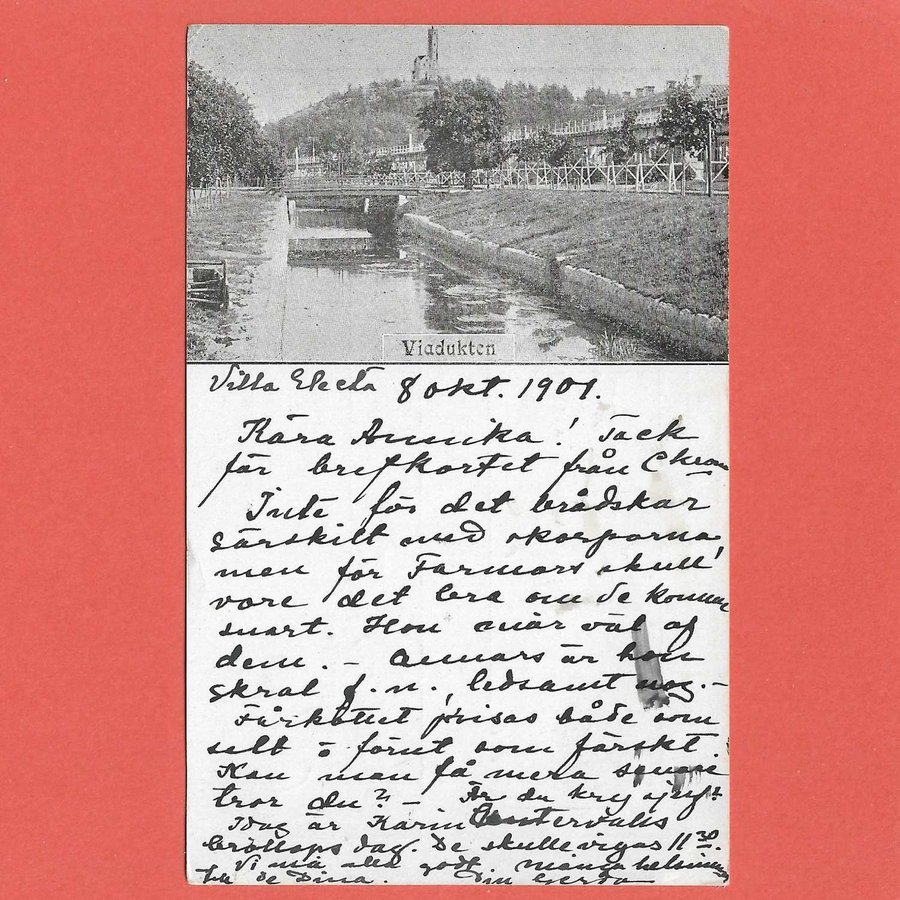 Viadukten
Villa Electa 8 okt. 1901.
Kära Annika! Tack
för brefkortet från
Inte för det brådskar
särskilt med skorporna
men för Farmors skull
vore det bra om de komme
snart. Hon mår väl af
dem. – Annars är hon
skral f. n., ledsamt nog. –
Fårköttet prisas både som
salt o förut som färskt.
Kan man få mera
tror du? – Är du kry sjelf?
Idag är Karin
bröllops dag. De skulle vigas 11 30.
Vi må alla godt. många helsningar
till De Dina. Din Gerda